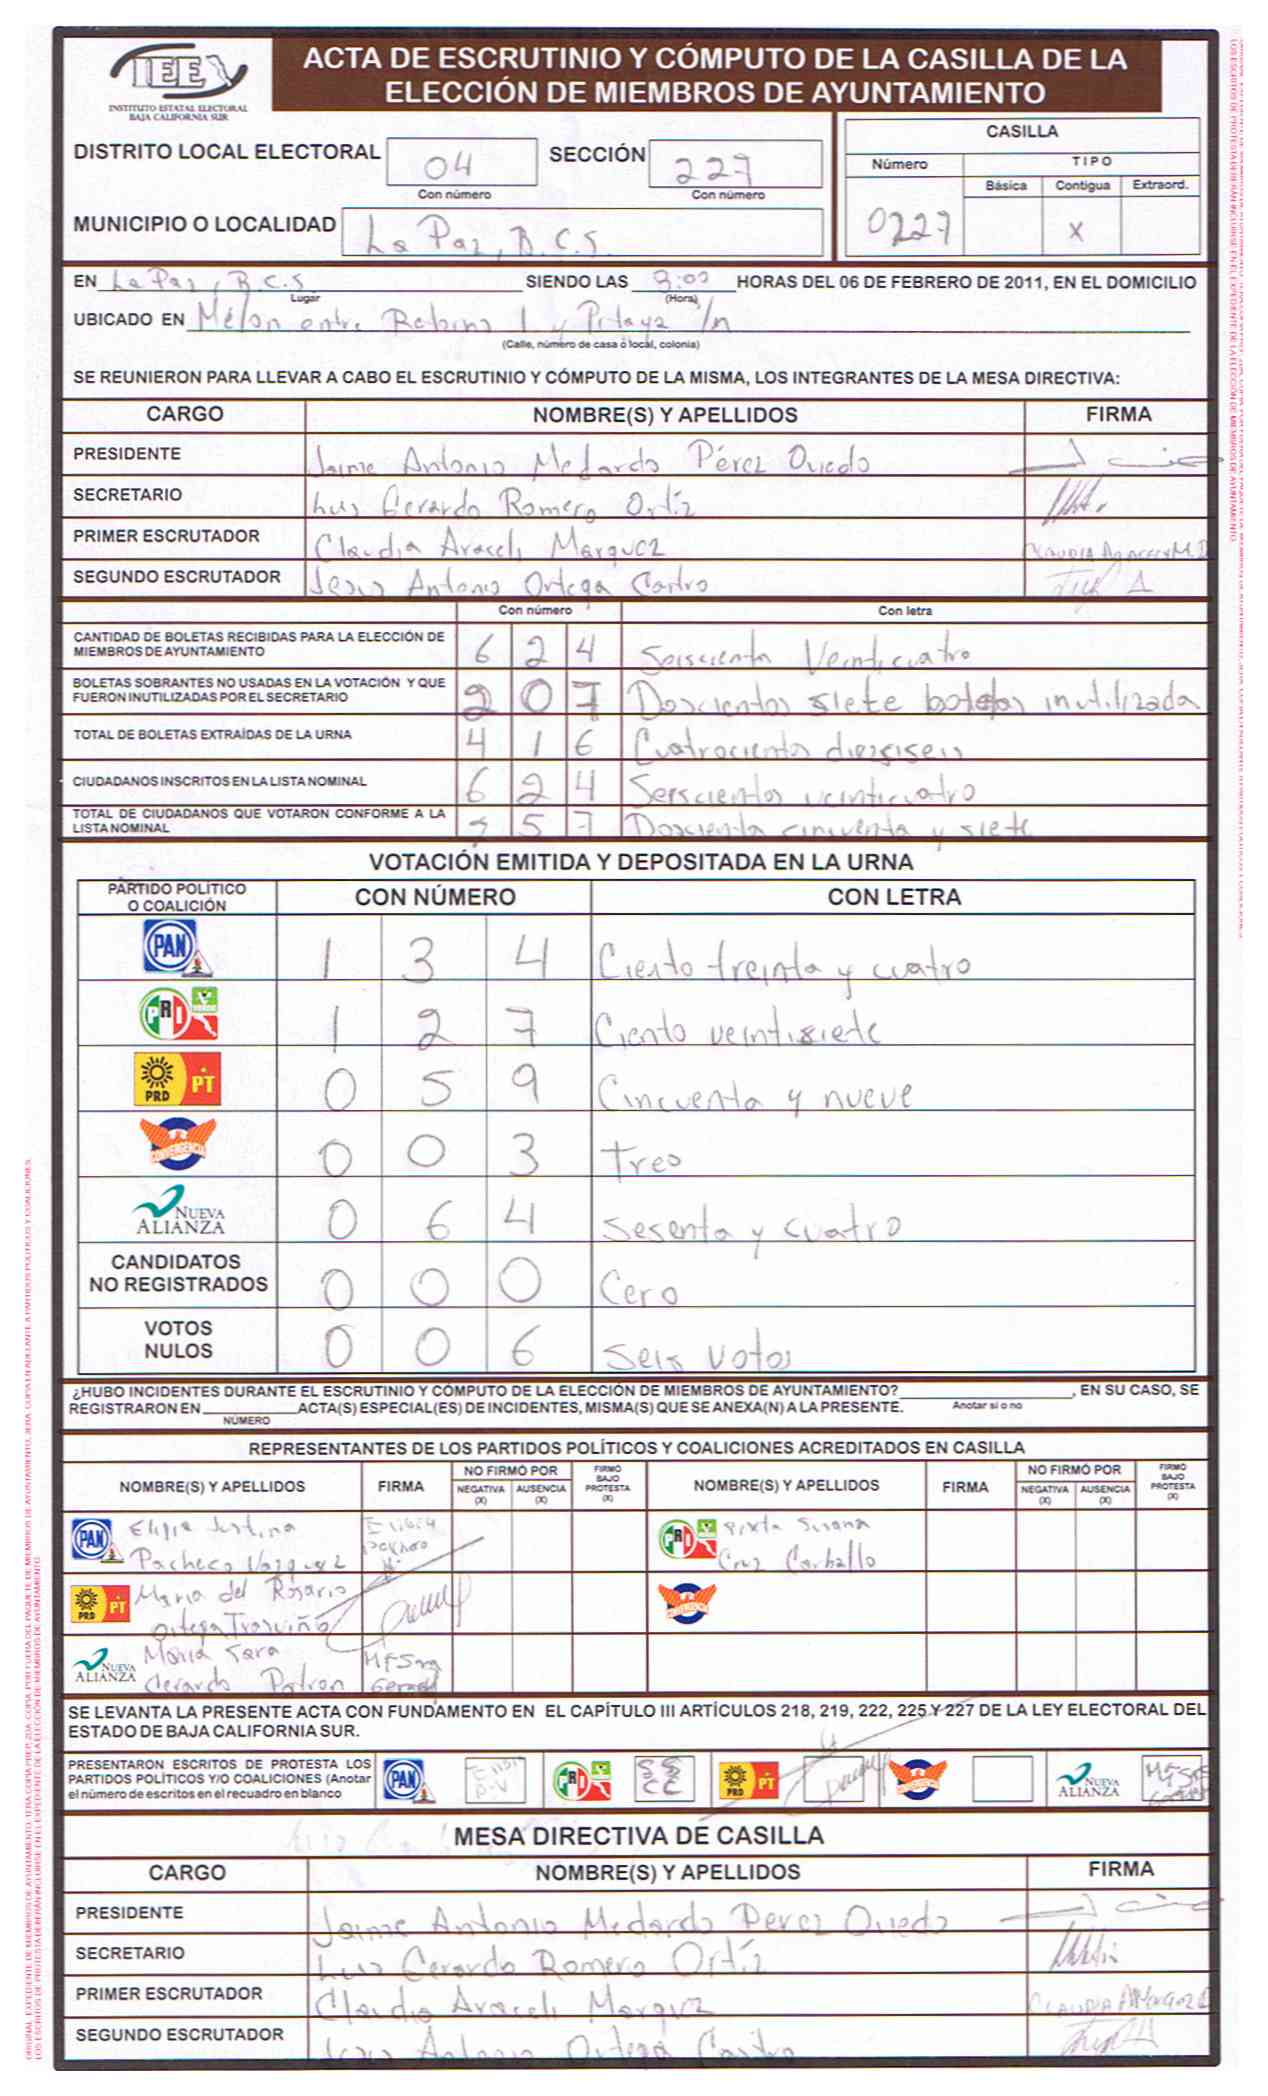 IEEX
INSTITUTO ESTATAL ELECTORAL
BAJA CALIFORNIA SUR
ACTA DE ESCRUTINIO Y CÓMPUTO DE LA CASILLA DE LA
ELECCIÓN DE MIEMBROS DE AYUNTAMIENTO
DISTRITO LOCAL ELECTORAL 04 SECCIÓN 227
Con número Con número
MUNICIPIO O LOCALIDAD La Paz, B.C.S.
CASILLA
Número TIPO
Básica Contigua Extraord.
0227 X
EN La Paz, B.C.S SIENDO LAS HORAS DEL 06 DE FEBRERO DE 2011, EN EL DOMICILIO
Lugar (Hora)
UBICADO EN Melon entre Retorno 1 y Pitaya s/n
(Calle, número de casa o local, colonia)
SE REUNIERON PARA LLEVAR A CABO EL ESCRUTINIO Y CÓMPUTO DE LA MISMA, LOS INTEGRANTES DE LA MESA DIRECTIVA:
CARGO NOMBRE(S) Y APELLIDOS FIRMA
PRESIDENTE Jaime Antonio Medardo Pérez Oviedo
SECRETARIO Luis Gerardo Romero Ortíz
PRIMER ESCRUTADOR Claudia Araceli Márquez
SEGUNDO ESCRUTADOR Jesus Antonio Ortega Castro
Con número Con letra
CANTIDAD DE BOLETAS RECIBIDAS PARA LA ELECCIÓN DE
MIEMBROS DE AYUNTAMIENTO 6 2 4 Seiscienta Veinticuatro
BOLETAS SOBRANTES NO USADAS EN LA VOTACIÓN Y QUE
FUERON INUTILIZADAS POR EL SECRETARIO 2 0 7 Doscientos siete boletas inutilizada
TOTAL DE BOLETAS EXTRAÍDAS DE LA URNA 4 1 6 Cuatrocienta diezciseis
CIUDADANOS INSCRITOS EN LA LISTA NOMINAL 6 2 4 Seiscientos veinticuatro
TOTAL DE CIUDADANOS QUE VOTARON CONFORME A LA
LISTA NOMINAL 5 7 Doscienta cincuenta y siete
VOTACIÓN EMITIDA Y DEPOSITADA EN LA URNA
PARTIDO POLÍTICO
O COALICIÓN CON NÚMERO CON LETRA
PAN 1 3 4 Ciento treinta y cuatro
PRI VERDE 1 2 7 Ciento veintisiete
PRD PT 0 5 9 Cincuenta y nueve
CONVERGENCIA 0 0 3 Tres
NUEVA ALIANZA 0 6 4 Sesenta y cuatro
CANDIDATOS
NO REGISTRADOS 0 0 0 Cero
VOTOS
NULOS 0 0 6 Seis votos
¿HUBO INCIDENTES DURANTE EL ESCRUTINIO Y CÓMPUTO DE LA ELECCIÓN DE MIEMBROS DE AYUNTAMIENTO? , EN SU CASO, SE
REGISTRARON EN ACTA(S) ESPECIAL(ES) DE INCIDENTES, MISMA(S) QUE SE ANEXA(N) A LA PRESENTE. Anotar si o no
NÚMERO
REPRESENTANTES DE LOS PARTIDOS POLÍTICOS Y COALICIONES ACREDITADOS EN CASILLA
NOMBRE(S) Y APELLIDOS FIRMA NO FIRMÓ POR NEGATIVA (X) AUSENCIA (X) FIRMÓ BAJO PROTESTA (X) NOMBRE(S) Y APELLIDOS FIRMA NO FIRMÓ POR NEGATIVA (X) AUSENCIA (X) FIRMÓ BAJO PROTESTA (X)
PAN Justina PRI Susana
Pacheco Vazquez Cruz Carballo
PRD PT Maria del Rosario CONVERGENCIA
Ortega Trasviña
NUEVA ALIANZA Maria Sara
Gerardo Patron
SE LEVANTA LA PRESENTE ACTA CON FUNDAMENTO EN EL CAPÍTULO III ARTÍCULOS 218, 219, 222, 225 Y 227 DE LA LEY ELECTORAL DEL
ESTADO DE BAJA CALIFORNIA SUR.
PRESENTARON ESCRITOS DE PROTESTA LOS
PARTIDOS POLÍTICOS Y/O COALICIONES (Anotar
el número de escritos en el recuadro en blanco
PAN PRI PRD PT CONVERGENCIA NUEVA ALIANZA
MESA DIRECTIVA DE CASILLA
CARGO NOMBRE(S) Y APELLIDOS FIRMA
PRESIDENTE Jaime Antonio Medardo Perez Oviedo
SECRETARIO Luis Gerardo Romero Ortíz
PRIMER ESCRUTADOR Claudia Araceli Marquez
SEGUNDO ESCRUTADOR Jesus Antonio Ortega Castro